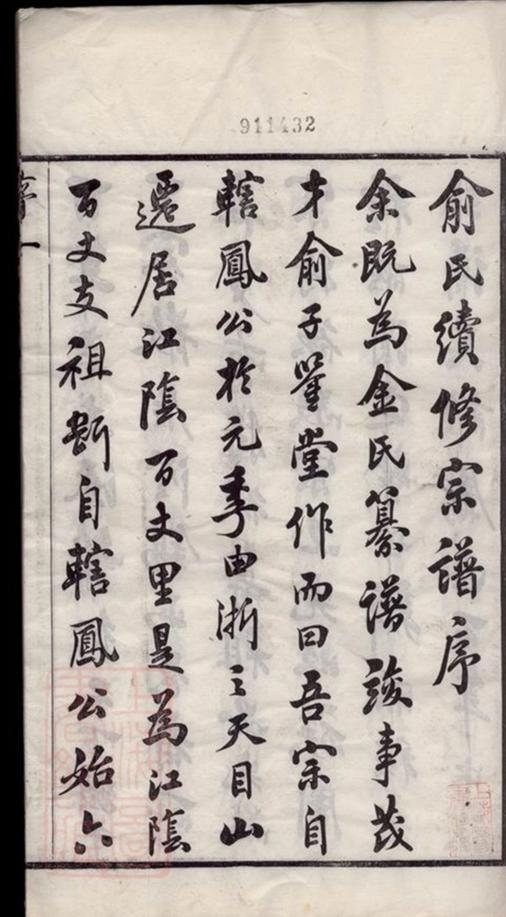 911432
俞氏續修宗譜序
余既為金氏纂譜竣事茂
才俞子鑒堂作而曰吾宗自
轄鳳公於元季由浙之天目山
遷居江陰百丈里是為江陰
百丈支祖斷自轄鳳公始六
序一